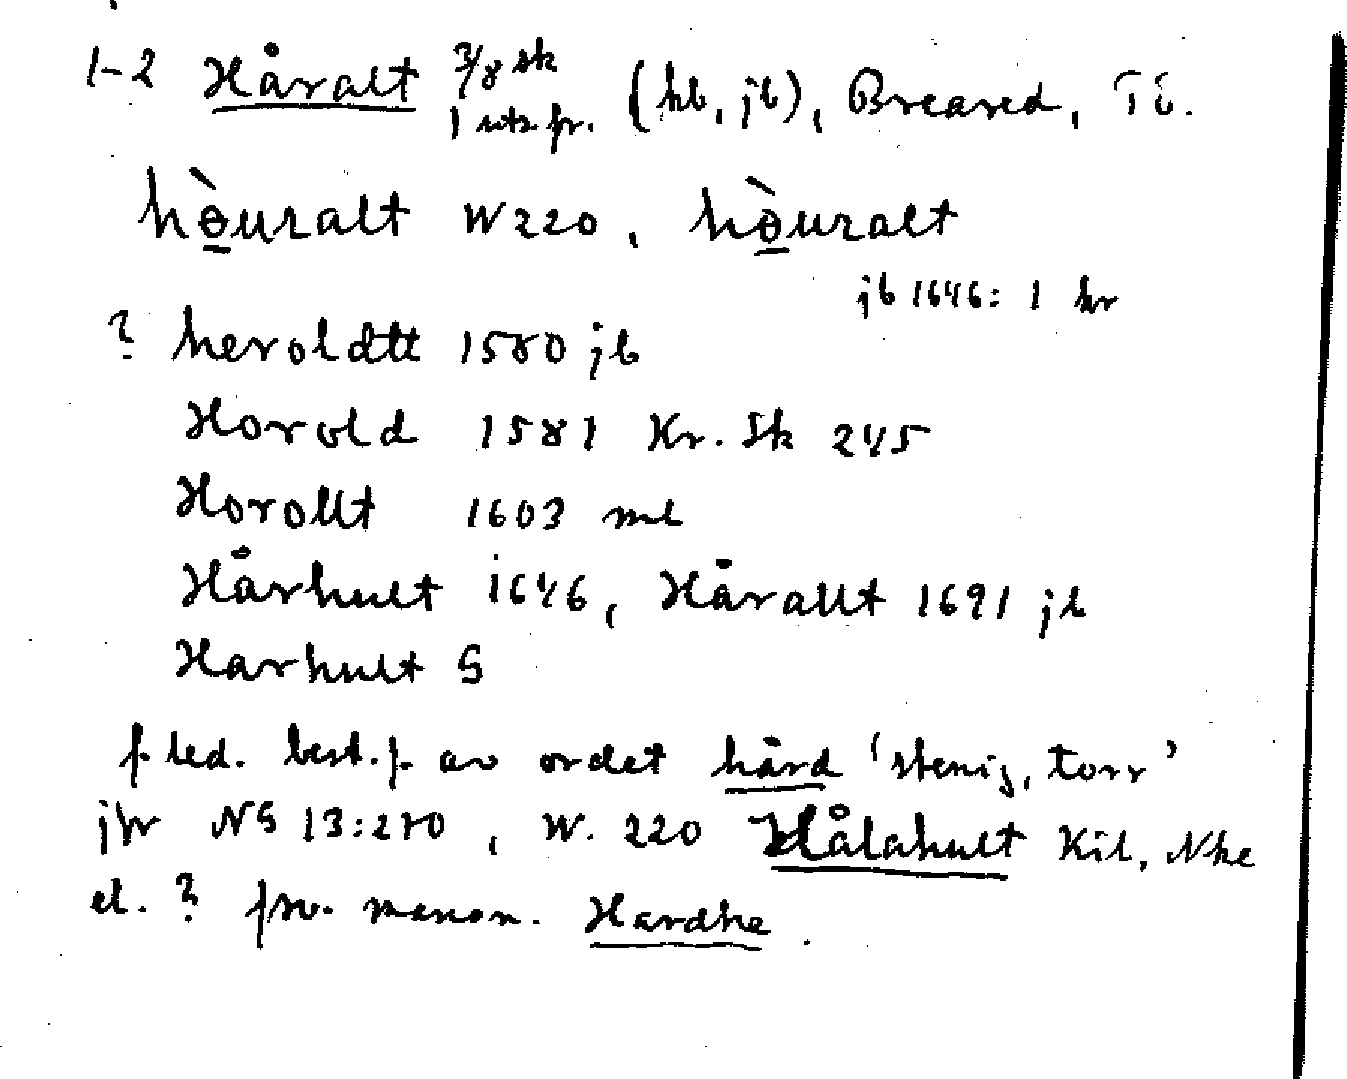 1-2 Håralt 3/8 sk (hb, jb), Breared, Tö.
1 utsfr.
hò̱uralt W 220, hò̱uralt
jb 1646: 1 kr
? heroldtt 1580 jb
Horold 1581 Kr. Sk 245
Horollt 1603 ml
Hårhult 1646, Hårallt 1691 jb
Harhult S
f. led. best. f. av ordet hård 'stenig, torr'
jfr NG 13:270, W. 220 Hålahult Kil, Nke
el. ? fsv. mansn. Hardhe.